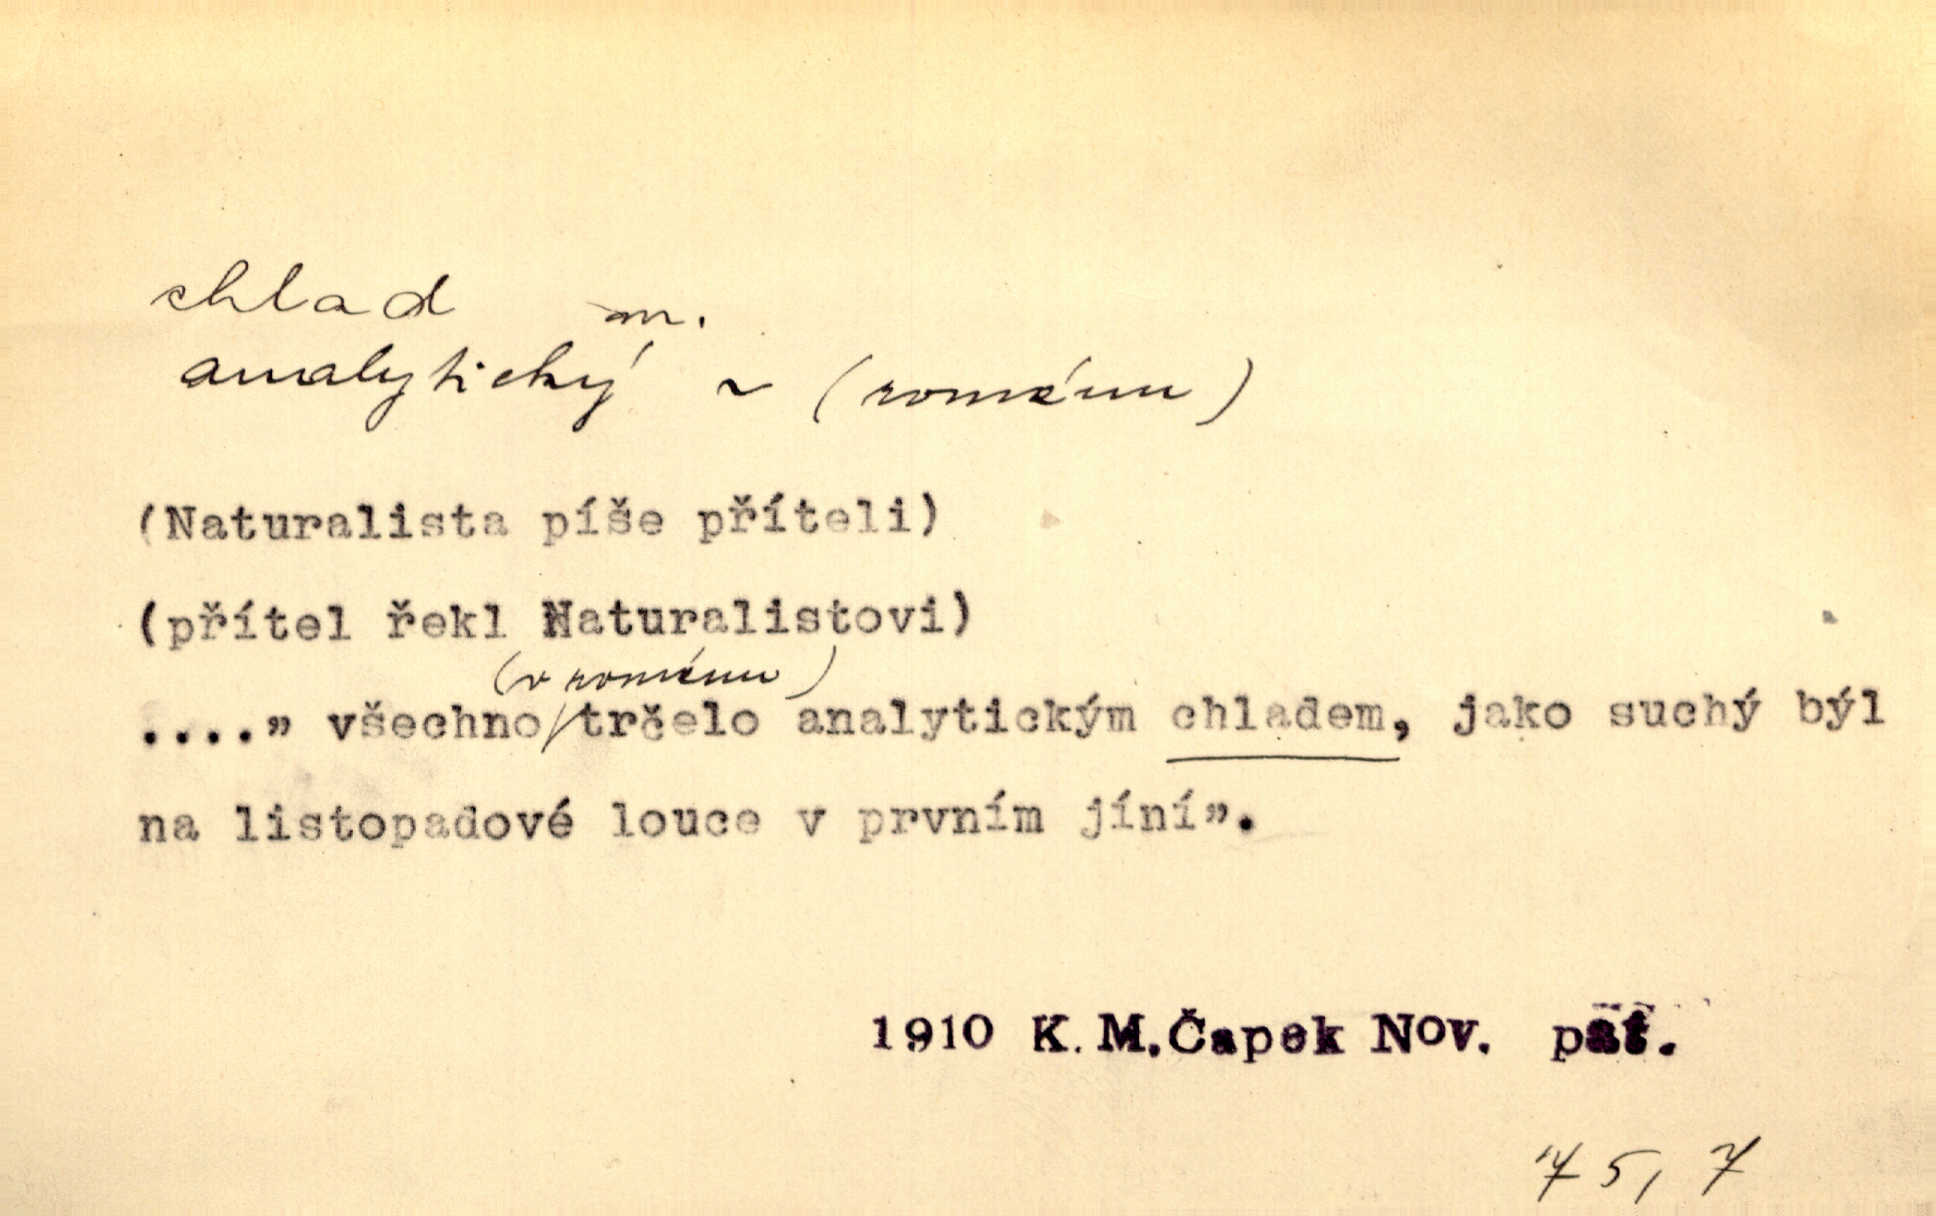 chlad m.
analytický ~ (románu)
(Naturalista píše příteli)
(přítel řekl Naturalistovi)
(v románu)
....” všechno/trčelo analytickým chladem, jako suchý býl
na listopadové louce v prvním jíní”.
1910 K. M. Čapek Nov. pat.
75, 7